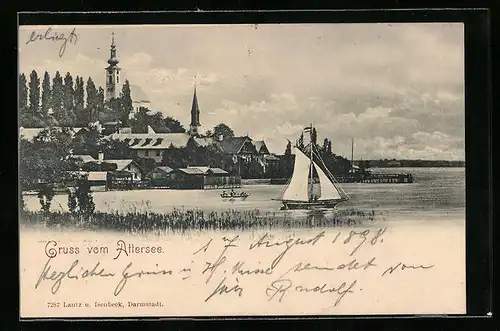 erliegt
Gruss vom Attersee.
17 August 1898.
Herzlichen Gruss u. Küsse sendet von
Rudolf.
7287 Lautz u. Isenbeck, Darmstadt.